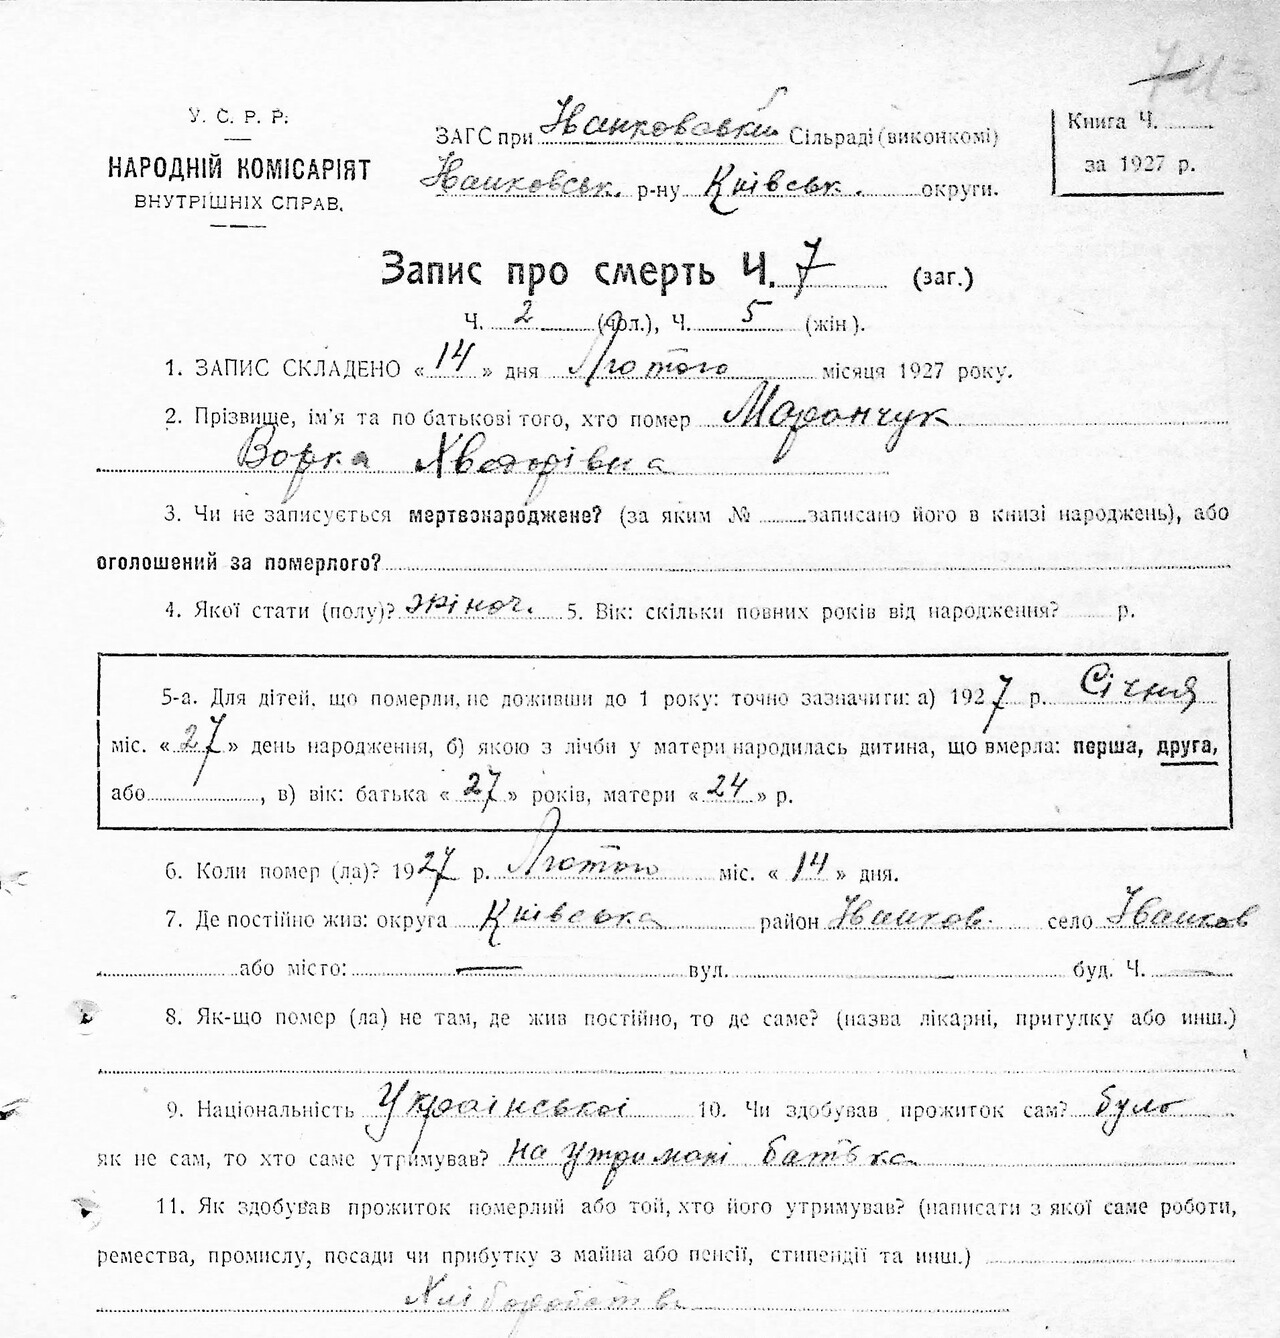 713
У. С. Р. Р.
НАРОДНІЙ КОМІСАРІЯТ
ВНУТРІШНІХ СПРАВ.
ЗАГС при Іванковській Сільраді (виконкомі)
Іванковськ. р-ну Київськ. округи.
Книга Ч.
за 1927 р.
Запис про смерть Ч. 7 (заг.)
Ч. 2 (чол.), Ч. 5 (жін).
1. ЗАПИС СКЛАДЕНО « 14 » дня Лютого місяця 1927 року.
2. Прізвище, ім'я та по батькові того, хто помер Марончук
Ворка Хведорівна
3. Чи не записується мертвонароджене? (за яким № записано його в книзі народжень), або
оголошений за померлого?
4. Якої стати (полу)? жіноч. 5. Вік: скільки повних років від народження? р.
5-а. Для дітей, що померли, не доживши до 1 року: точно зазначити: а) 1927 р. Січня
міс. « 27 » день народження, б) якою з лічби у матери народилась дитина, що вмерла: перша, друга,
або , в) вік: батька « 27 » років, матери « 24 » р.
6. Коли помер (ла)? 1927 р. Лютого міс. « 14 » дня.
7. Де постійно жив: округа Київська район Іванков. село Іванков
або місто: — вул. буд. Ч. —
8. Як-що помер (ла) не там, де жив постійно, то де саме? (назва лікарні, притулку або инш.)
9. Національність Української 10. Чи здобував прожиток сам? було
як не сам, то хто саме утримував? на утримані батька
11. Як здобував прожиток померлий або той, хто його утримував? (написати з якої саме роботи,
ремества, промислу, посади чи прибутку з майна або пенсії, стипендії та инш.)
Хліборобства